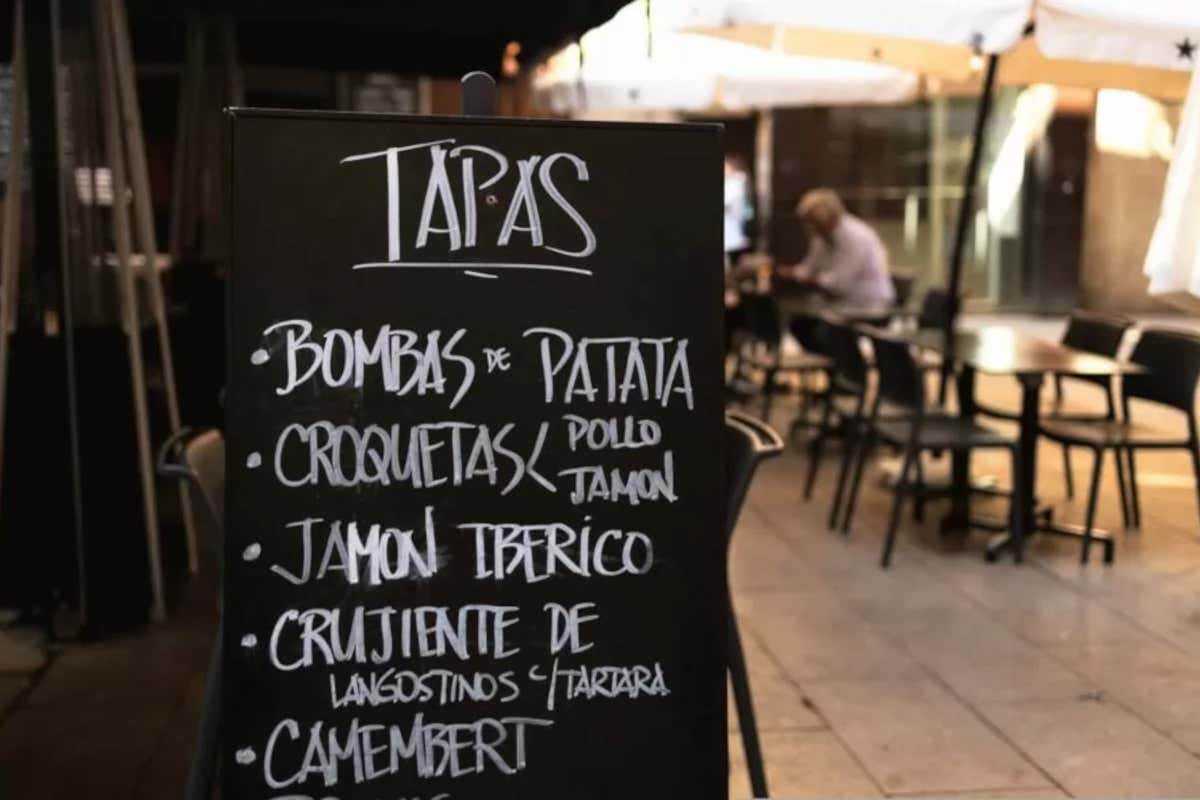 TAPAS
• BOMBAS DE PATATA
• CROQUETAS < POLLO
JAMON
• JAMON IBERICO
• CRUJIENTE DE
LANGOSTINOS C/TARTARA
• CAMEMBERT